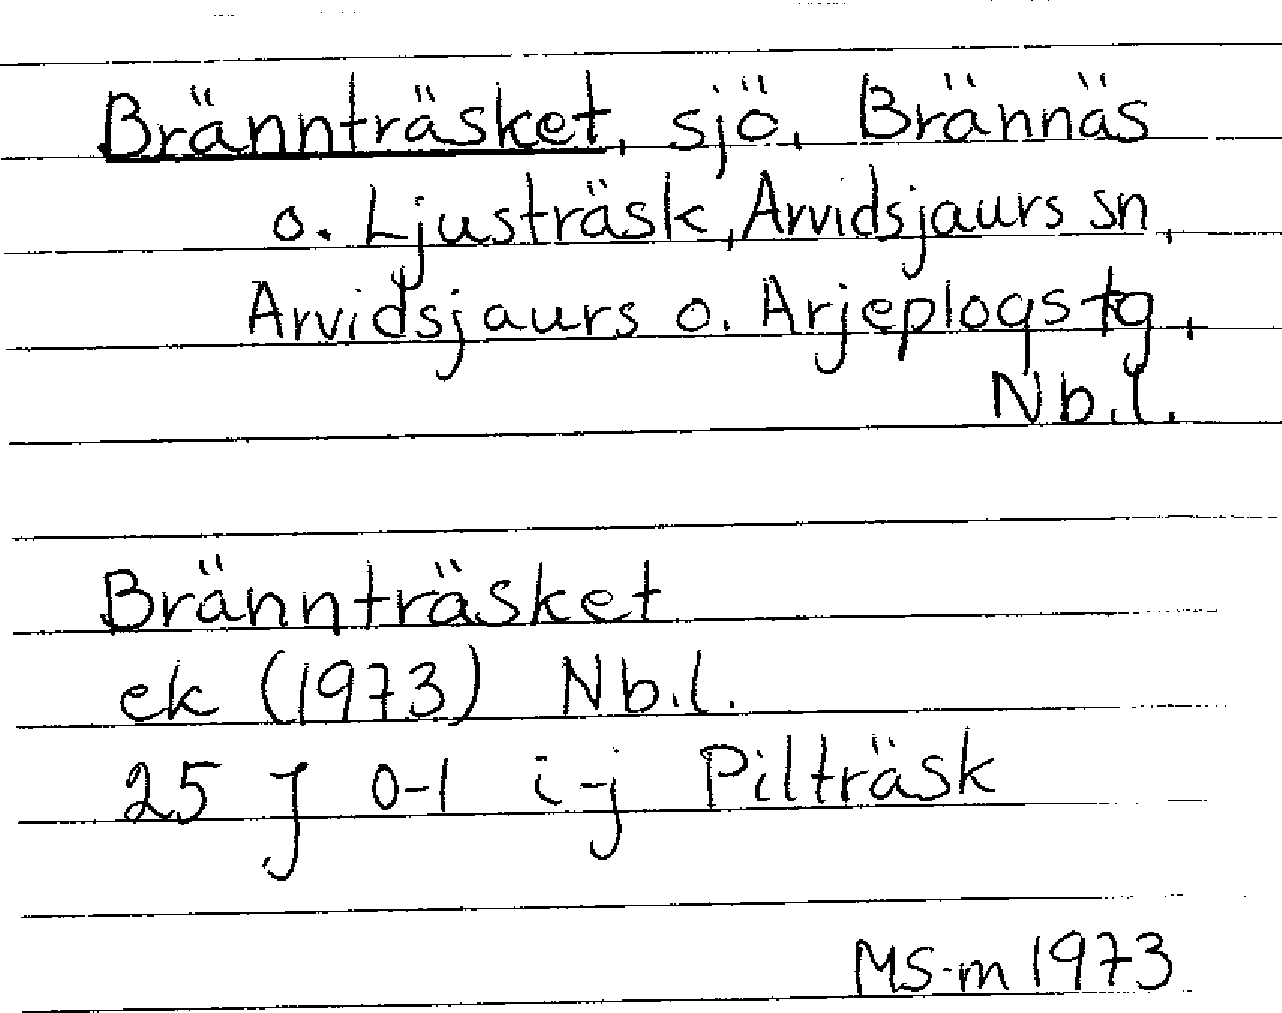 Brännträsket, sjö, Brännäs
o. Ljusträsk, Arvidsjaurs sn,
Arvidsjaurs o. Arjeplogs tg,
Nb.l.
Brännträsket
ek (1973) Nb.l.
25 J 0-1 i-j Pilträsk
MS-m 1973